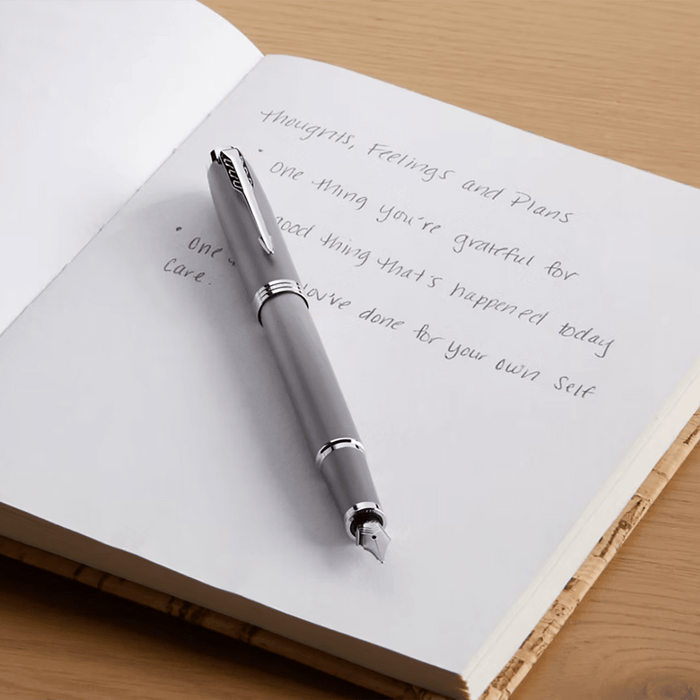 thoughts, Feelings and Plans
• one thing you're grateful for
good thing that's happened today
• one you've done for your own Self
care.